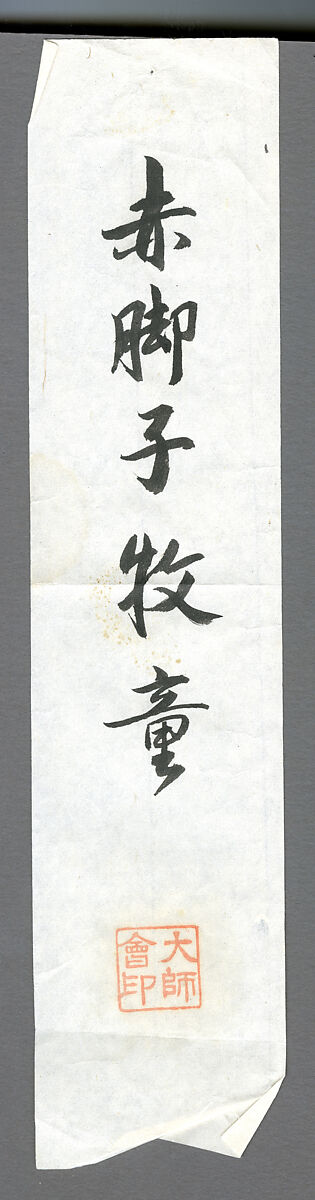 赤脚子牧童
大師
會印